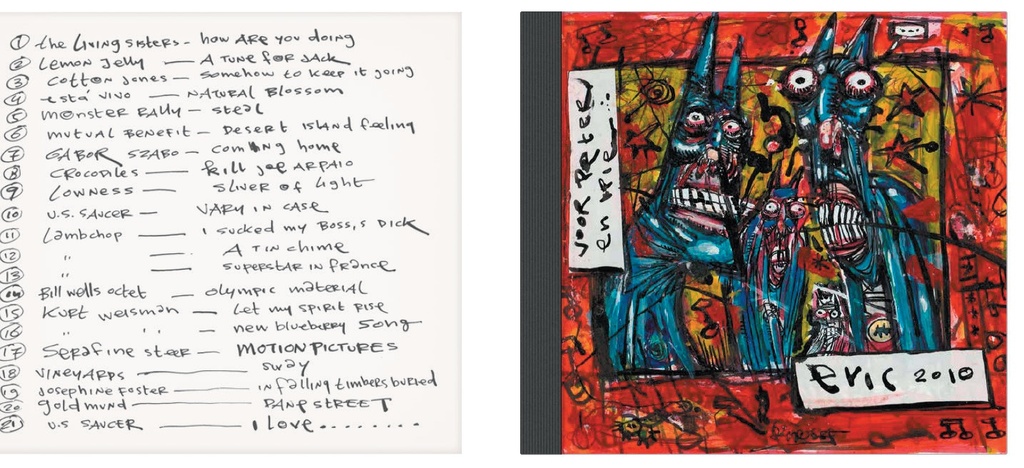 ① the Living sisters - how ARE you doing
② Lemon Jelly — A TUNE FOR JACK
③ cotton Jones - somehow to keep it going
④ está vivo — NATURAL Blossom
⑤ monster Rally - steal
⑥ mutual Benefit - Desert island feeling
⑦ GABOR SZABO - coming home
⑧ crocodiles — kill joe ARPAIO
⑨ Lowness — sliver of light
⑩ U.S. SAUCER — VARY IN CASE
⑪ Lambchop — I sucked my Boss,s DICK
⑫ " — A TIN chime
⑬ " — superstar in france
⑭ Bill wells octet — olympic material
⑮ Kurt weisman — Let my spirit Rise
⑯ " " — new blueberry song
⑰ Serafine steer — MOTION PICTURES
⑱ VINEYARDS — sway
⑲ Josephine Foster — in falling timbers buried
⑳ goldmund — STREET
㉑ U.S SAUCER — I Love........
voor Peter
en
...
eric 2010